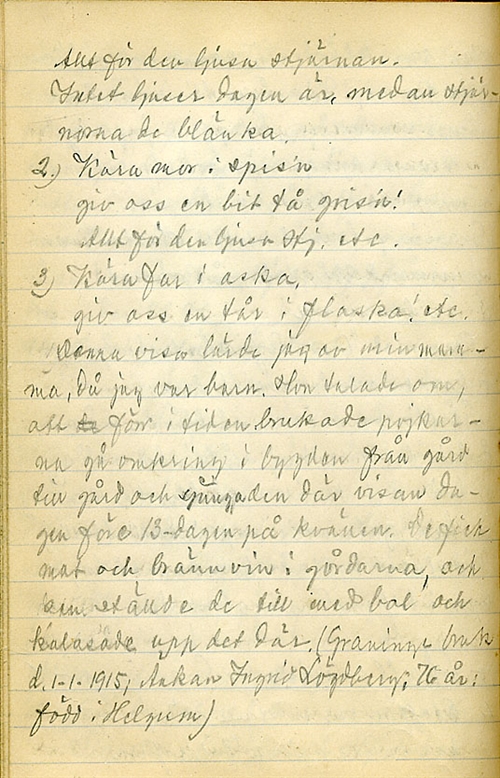 Allt för den ljusa stjärnan.
Intet ljuser dagen är, medan stjär-
norna de blänka.
2.) Kära mor i spis'n
giv oss en bit tå gris'n!
Allt för den ljusa stj. etc.
3) Kära far i aska,
giv oss en tår i flaska! etc.
Denna visa lärde jag av min mam-
ma, då jag var barn. Hon talade om,
att för i tiden brukade pojkar-
na gå omkring i bygden från gård
till gård och sjunga den där visan da-
gen före 13-dagen på kvällen. De fick
mat och brännvin i gårdarna, och
sen ställde de till med bal och
kalasade upp det där. (Graninge bruk
d. 1-1-1915, Änkan Ingrid Lögdberg, 76 år:
född i Helgum)